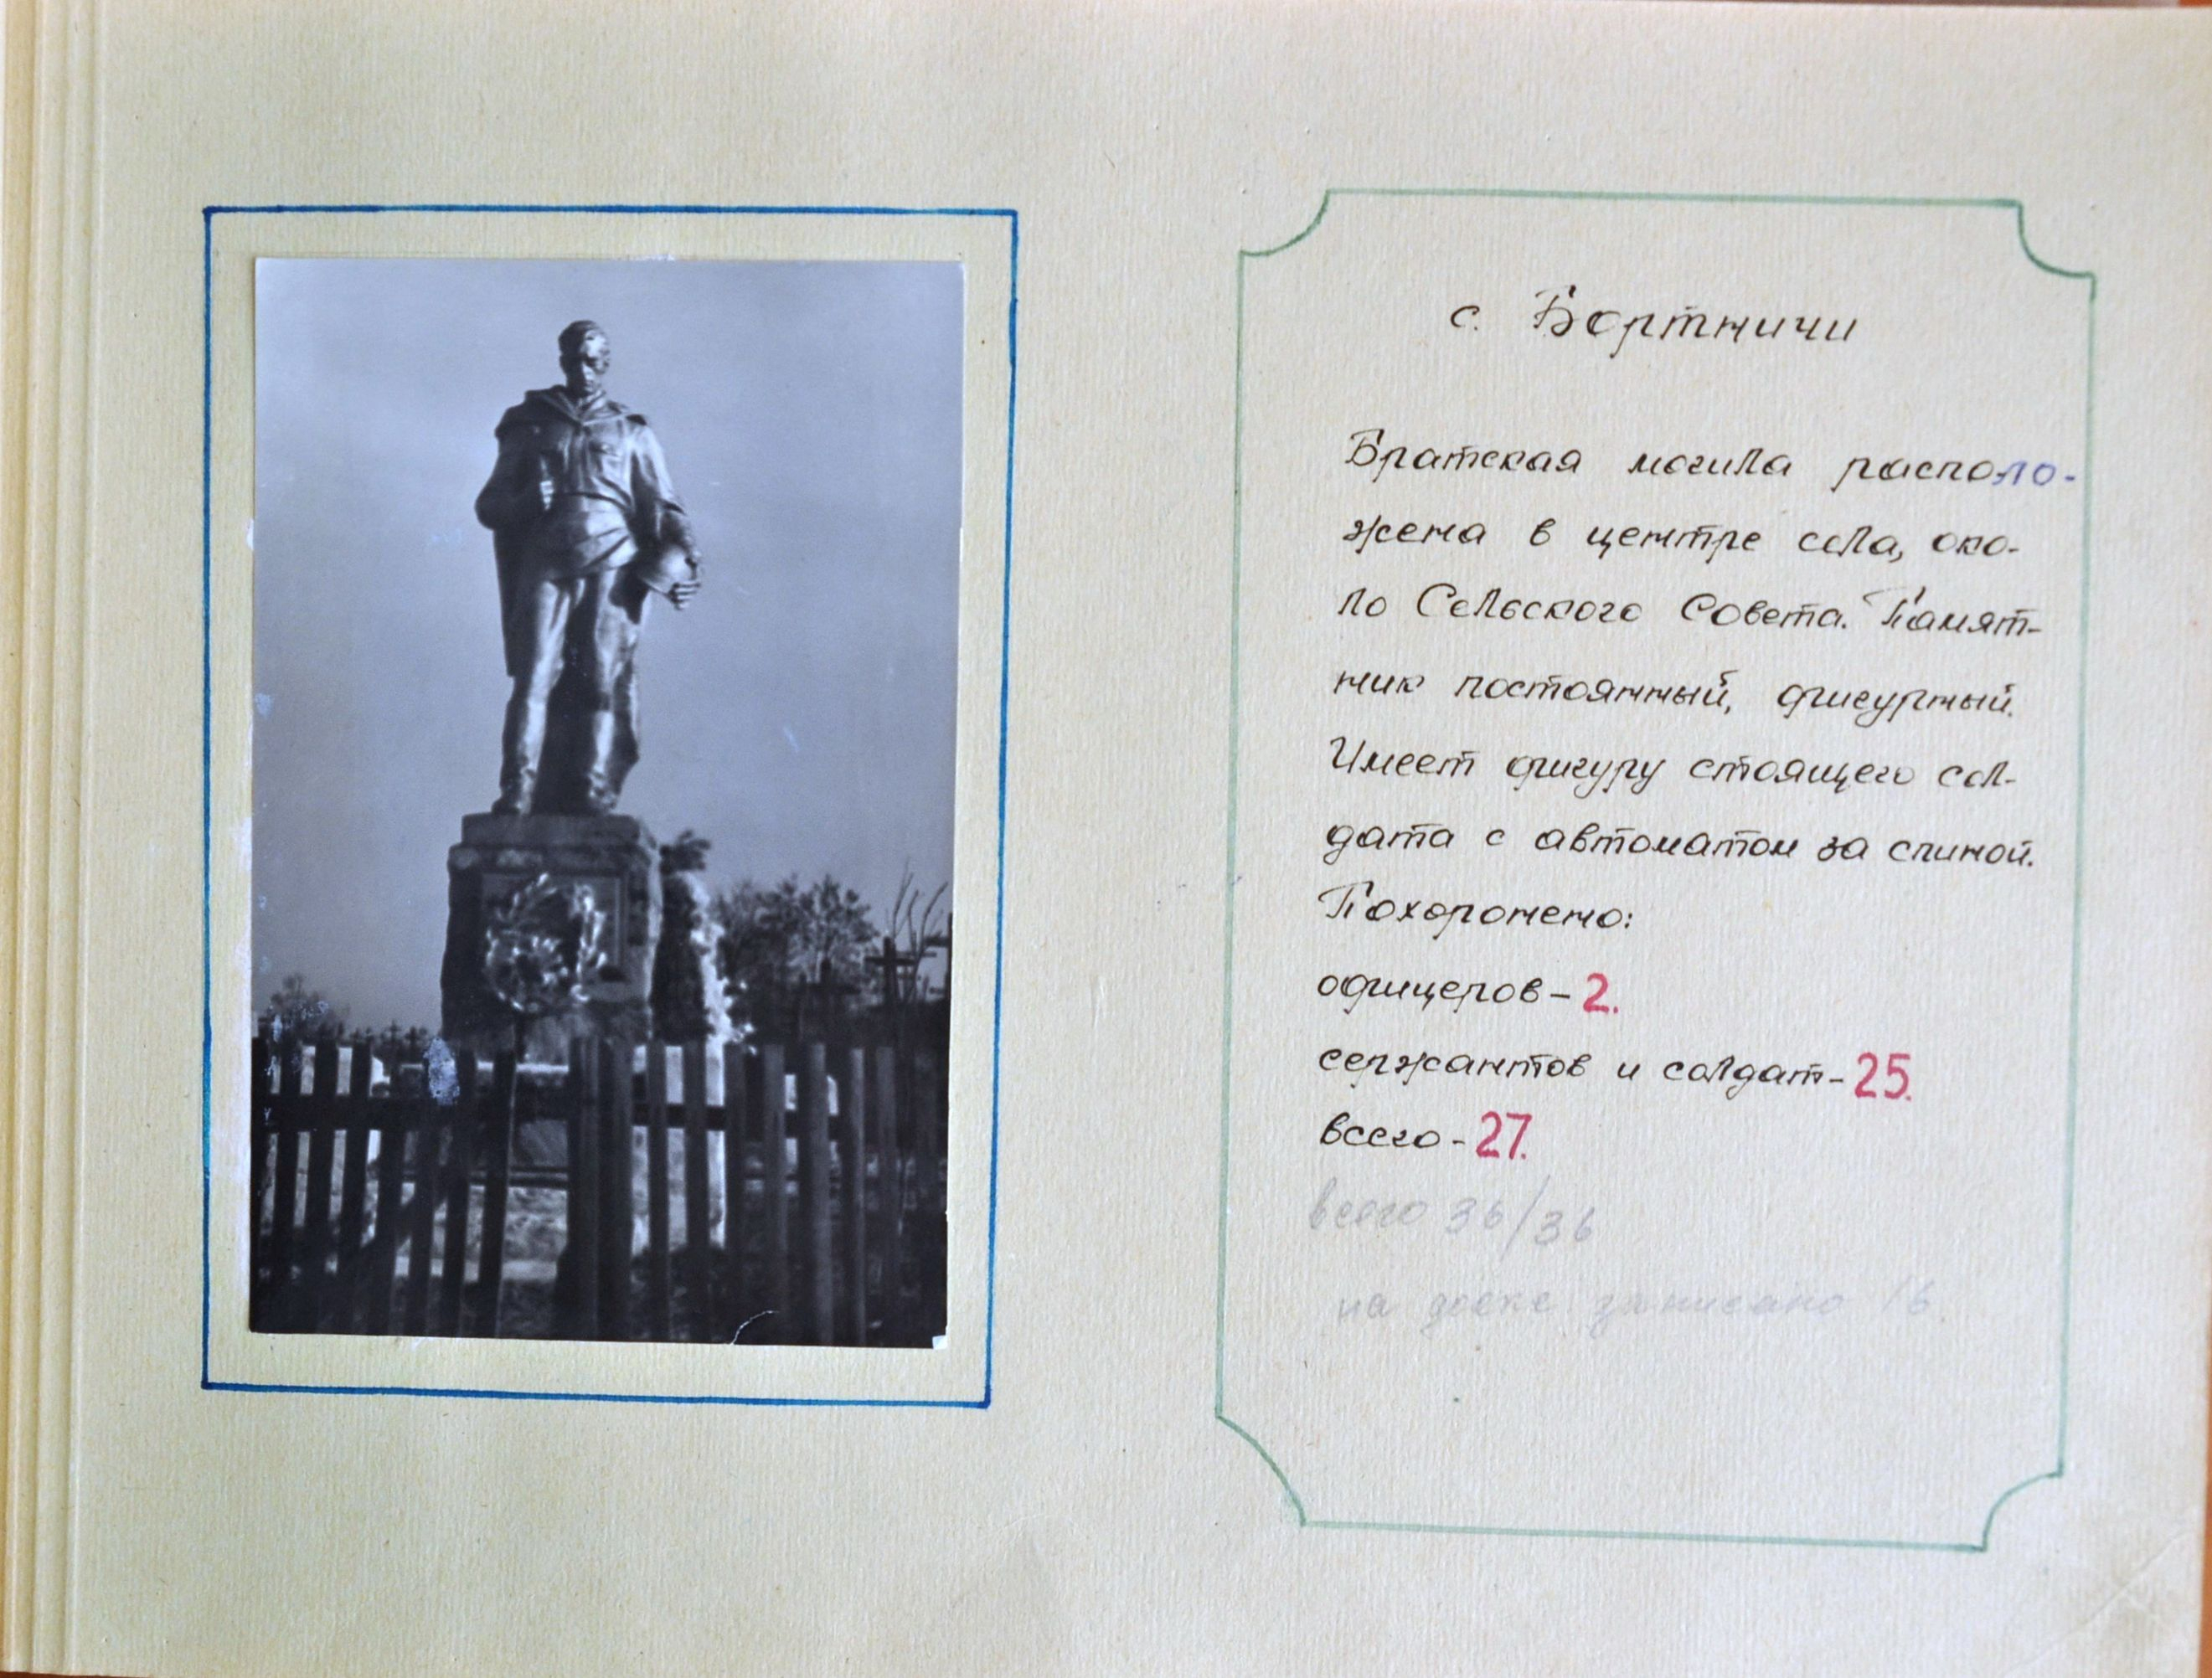 с. Бортничи
Братская могила располо-
жена в центре села, око-
ло Сельского Совета. Памят-
ник постоянный, фигурный.
Имеет фигуру стоящего сол-
дата с автоматом за спиной.
Похоронено:
офицеров - 2.
сержантов и солдат - 25.
всего - 27.
всего 36/36
на доске записано 16.